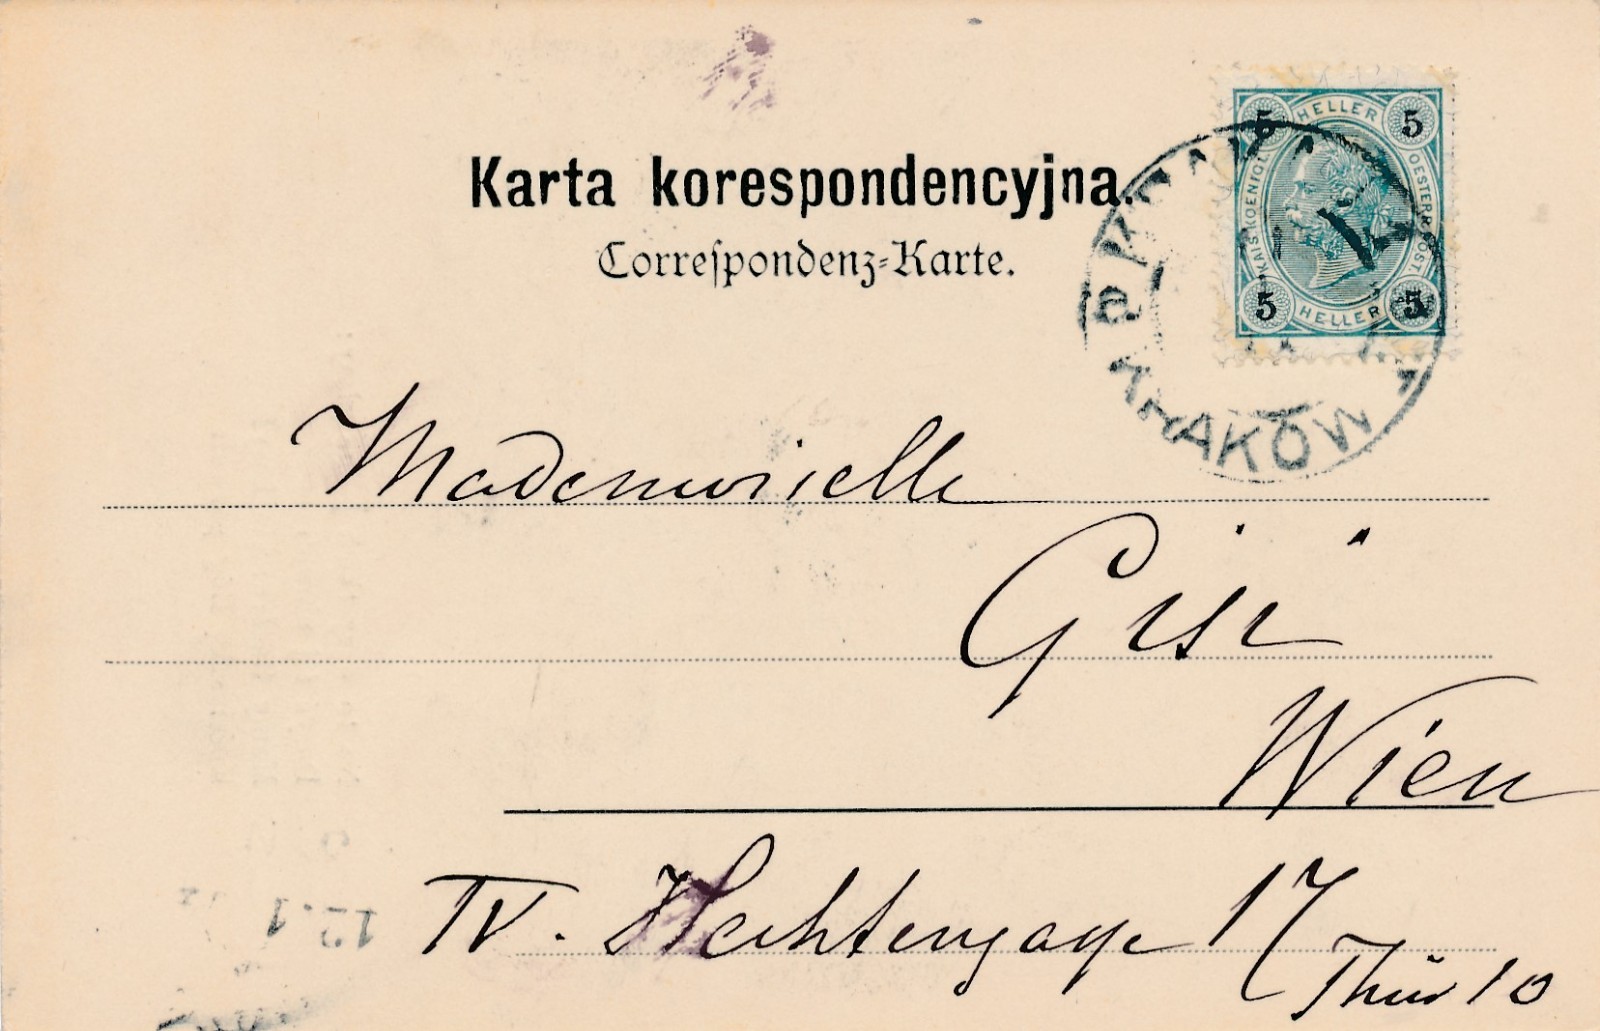 Karta korespondencyjna.
Correspondenz-Karte.
5 HELLER 5
KAIS. KOENIGL. OESTERR. POST.
5 HELLER 5
KRAKÓW
Mademoiselle
Gisi
Wien
IV. Hechtengasse 17
Thür 10
12.1